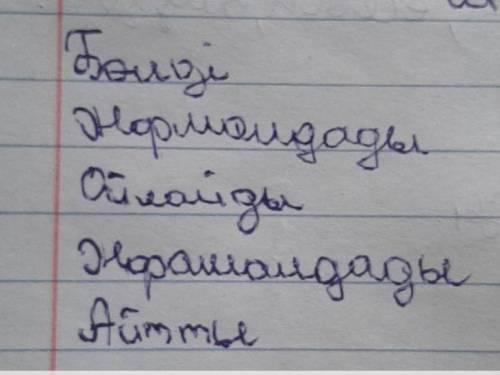 Бөлді
Жормалдады
Ойлайды
Жорамалдады
Айтты